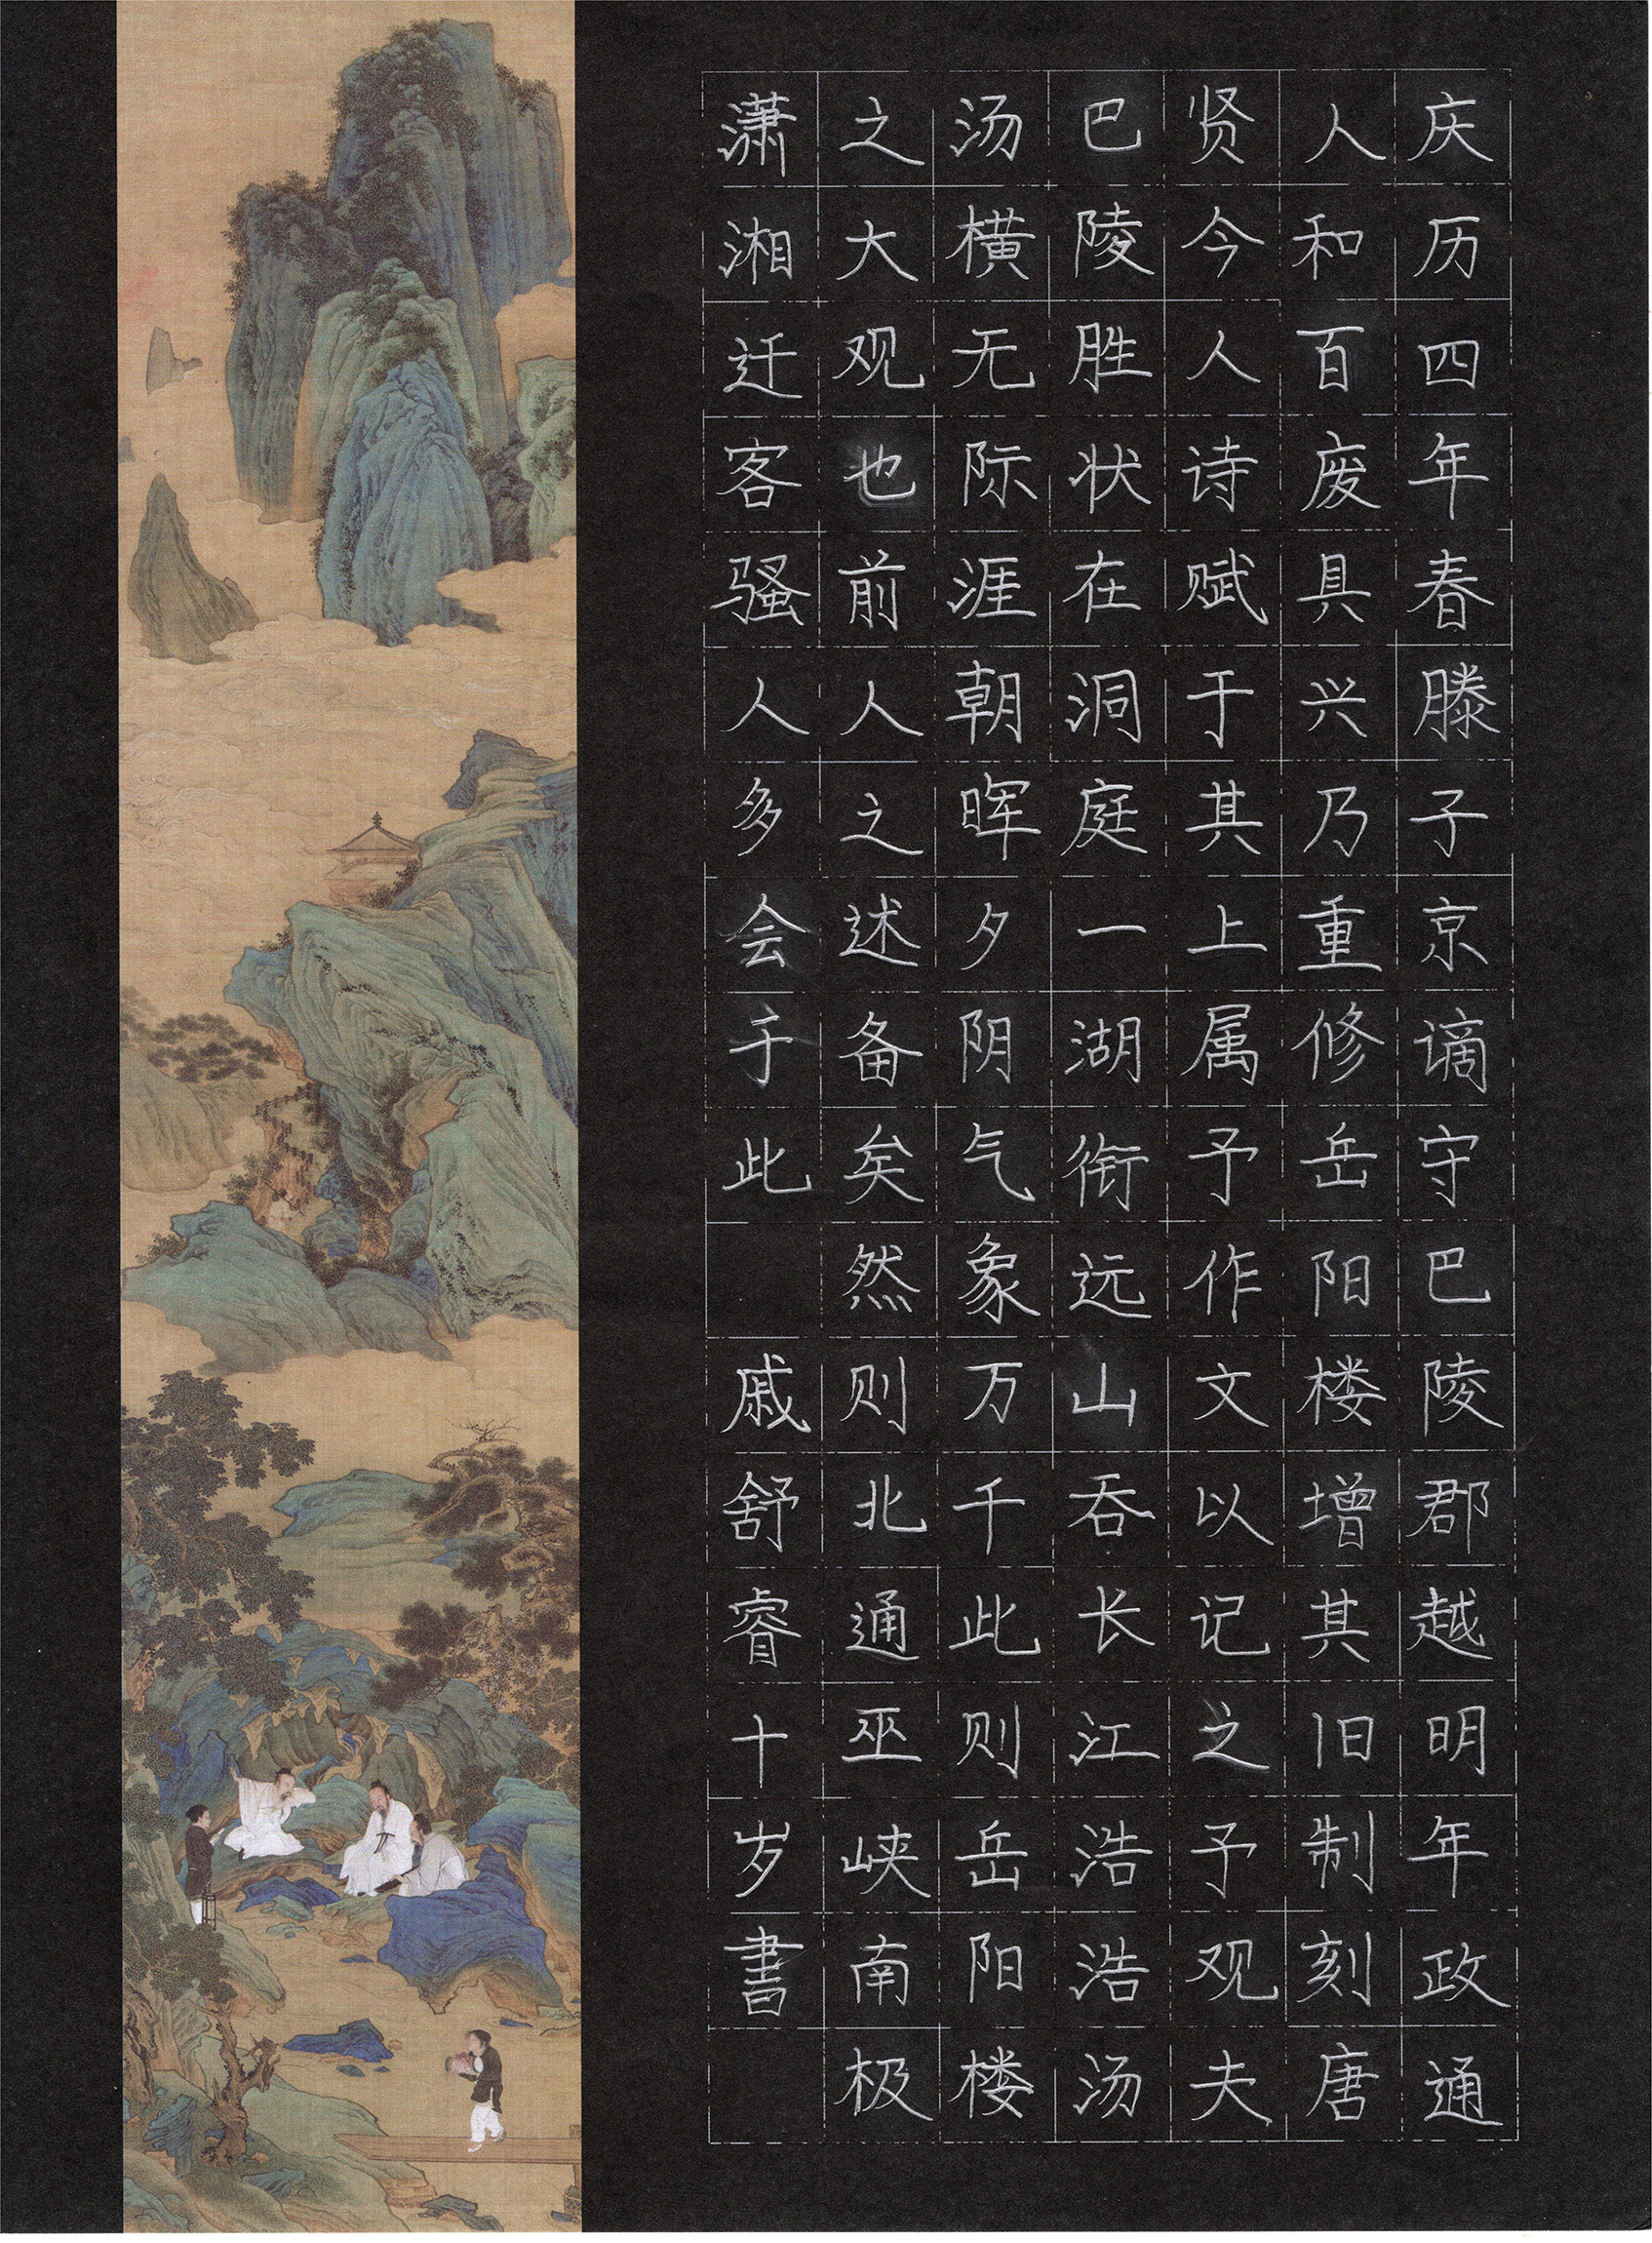 庆历四年春滕子京谪守巴陵郡越明年政通
人和百废具兴乃重修岳阳楼增其旧制刻唐
贤今人诗赋于其上属予作文以记之予观夫
巴陵胜状在洞庭一湖衔远山吞长江浩浩汤
汤横无际涯朝晖夕阴气象万千此则岳阳楼
之大观也前人之述备矣然则北通巫峡南极
潇湘迁客骚人多会于此 戚舒睿十岁書